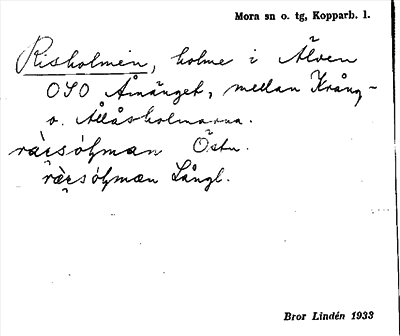 Mora sn o. tg, Kopparb. l.
Risholmen, holme i Älven
OSO Åmänget, mellan Krång-
o. Ållåsholmarna.
Östn.
Långl.
Bror Lindén 1933